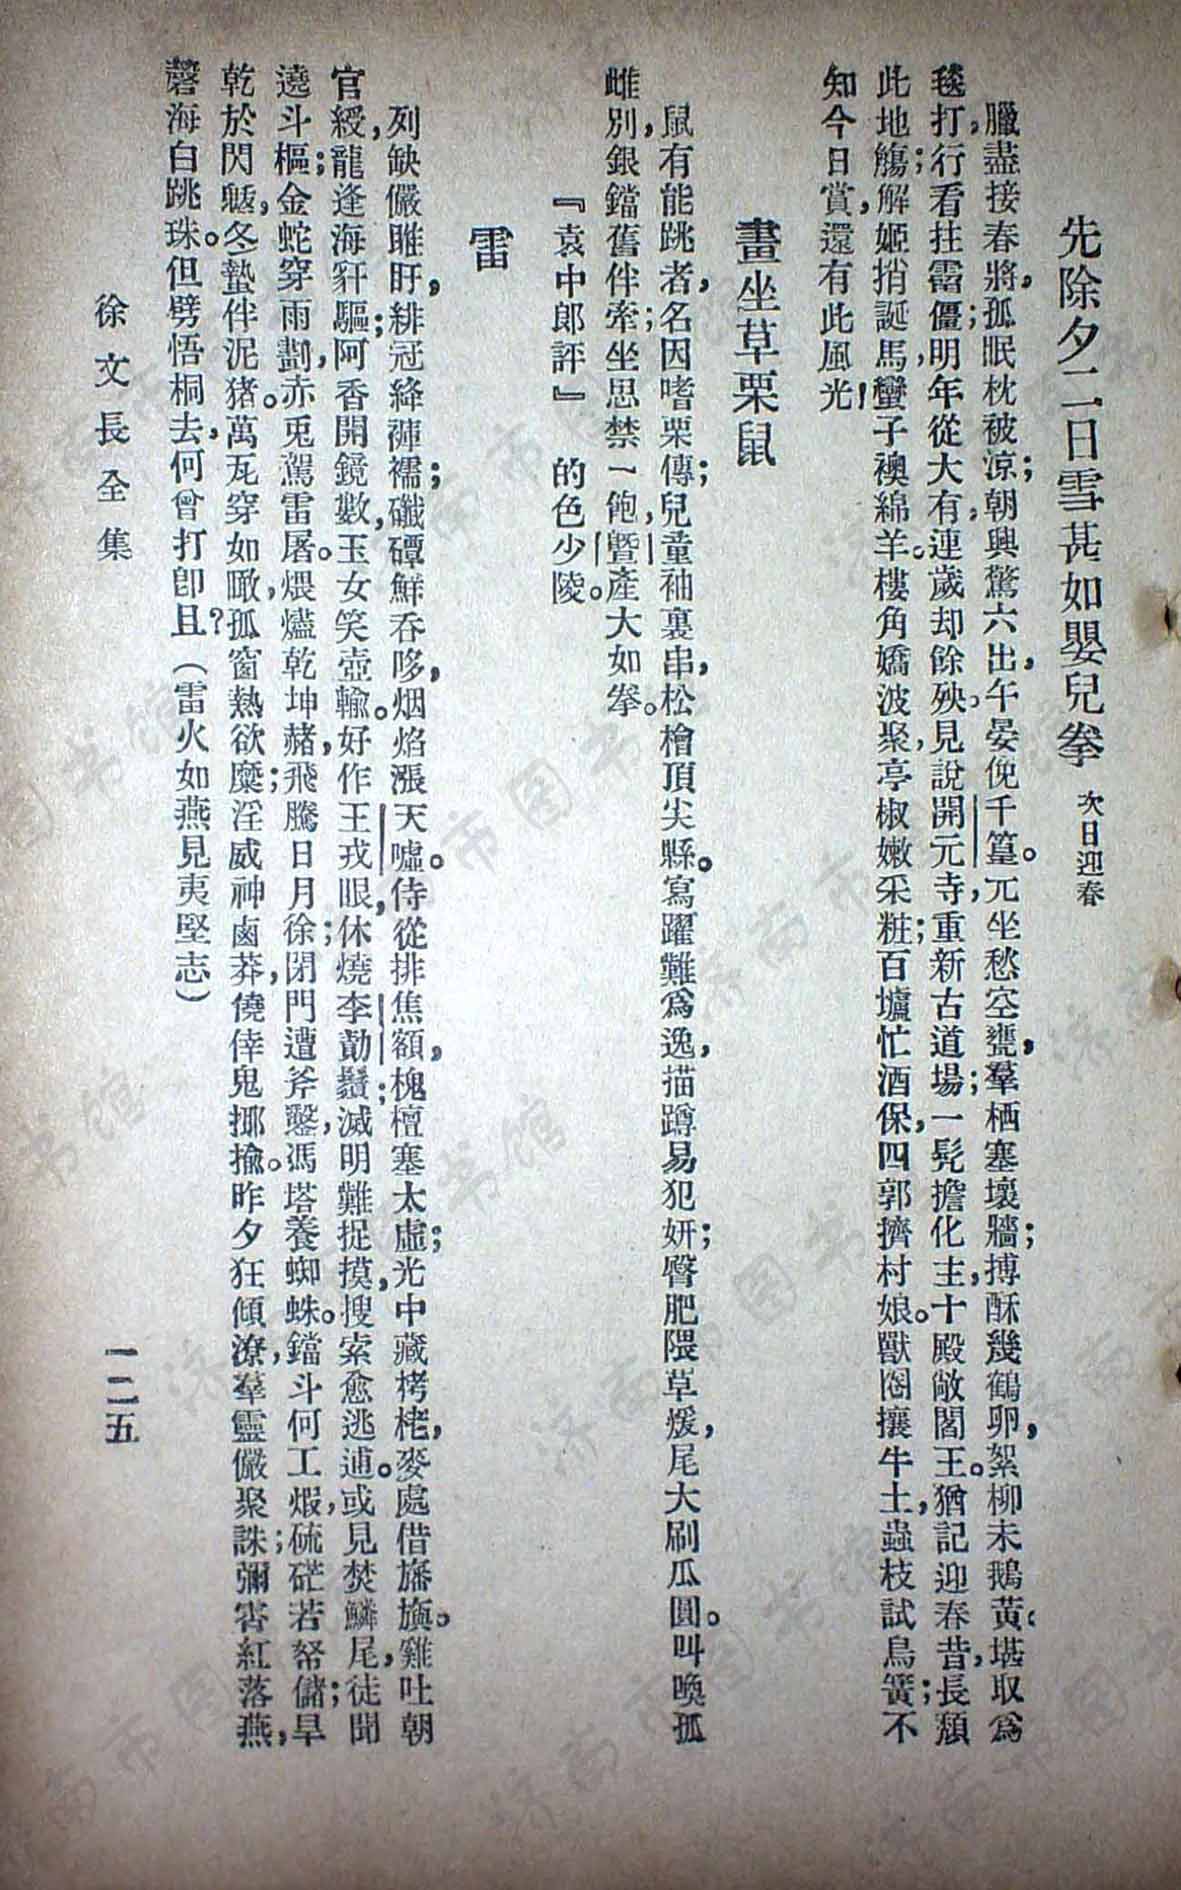 先除夕二日雪甚如嬰兒拳 次日迎春
臘盡接春將，孤眠枕被涼；朝興驚六出，午晏俛千篁。兀坐愁空甕，羣栖塞壞牆；摶酥幾鶴卵，絮柳未鵝黃。堪取爲
毬打，行看拄霤僵；明年從大有，連歲却餘殃。見說開元寺，重新古道場；一髡擔化主，十殿敞閻王。猶記迎春昔，長𩕳
此地觴；解姬捎誕馬，蠻子襖綿羊。樓角嬌波聚，亭椒嫩采粧；百壚忙酒保，四郭擠村娘。獸圈攘牛土，蟲枝試鳥簧；不
知今日賞，還有此風光！
畫坐草栗鼠
鼠有能跳者，名因嗜栗傳；兒童袖裏串，松檜頂尖縣。寫躍難爲逸，描蹲易犯妍；臀肥隈草煖，尾大刷瓜圓。叫喚孤
雌別，銀鐺舊伴牽；坐思禁一飽，暨產大如拳。
『袁中郎評』 的色少陵。
雷
列缺儼睢盱，緋冠絳褲襦；礮磹鮮呑哆，烟焰漲天噓。侍從排焦額，槐檀塞太虛；光中藏栲栳，麥處借旛旟。雞吐朝
官綬，龍逢海豻驅；阿香開鏡數，玉女笑壺輸。好作王戎眼，休燒李勣鬚；滅明難捉摸，搜索愈逃逋。或見焚鱗尾，徒聞
遶斗樞；金蛇穿雨劃，赤兎駕雷屠。煨燼乾坤赭，飛騰日月徐；閉門遭斧鑿，馮塔養蜘蛛。鐺斗何工煆，硫硭若帑儲；旱
乾於閃魃，冬蟄伴泥猪。萬瓦穿如瞰，孤窗熱欲糜；淫威神鹵莽，僥倖鬼揶揄。昨夕狂傾潦，羣靈儼聚誅；彌霄紅落燕，
罄海白跳珠。但劈悟桐去，何曾打卽且？（雷火如燕見夷堅志）
徐文長全集
一二五